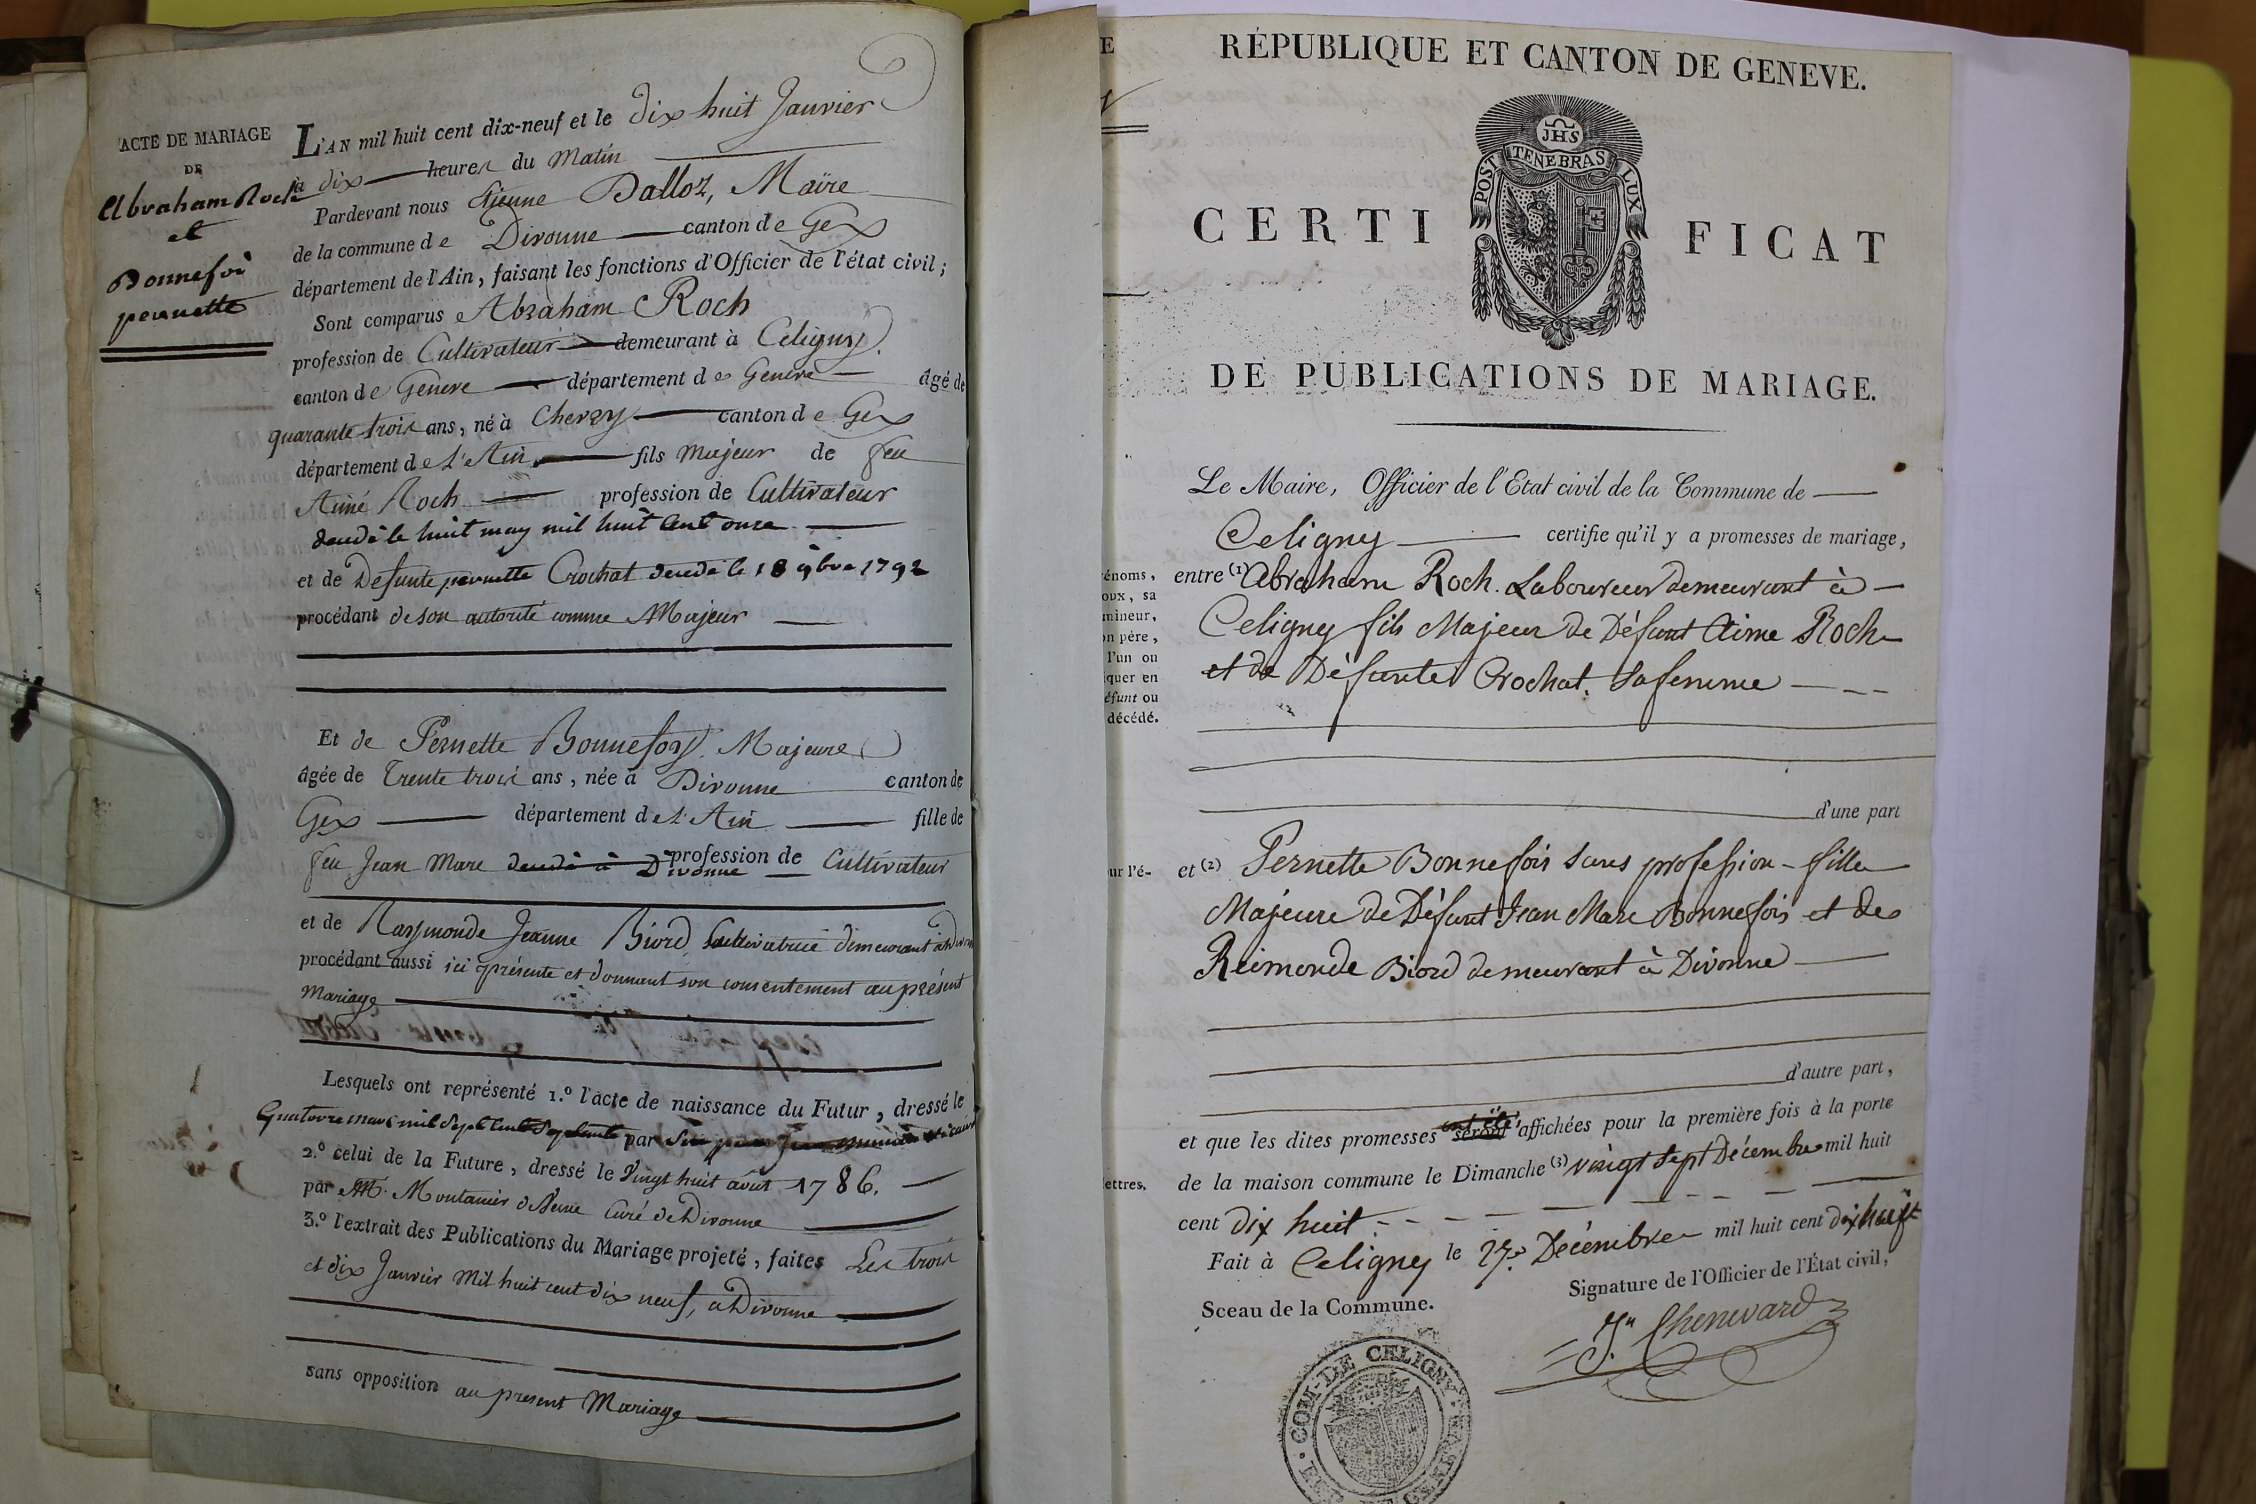 ACTE DE MARIAGE
DE
Abraham Roch
et
Bonnefoi
pernette
L'AN mil huit cent dix-neuf et le dix huit Janvier
à dix heures du Matin
Pardevant nous Etienne Dalloz, Maire
de la commune de Divonne canton de Gex
département de l'Ain, faisant les fonctions d'Officier de l'état civil;
Sont comparus Abraham Roch
profession de Cultivateur demeurant à Celigny
canton de Geneve département de Geneve âgé de
quarante trois ans, né à Chevry canton de Gex
département de L'Ain fils Majeur de feu
Aimé Roch profession de Cultivateur
decedé le huit may mil huit cent onze
et de Defunte pernette Crochat decedé le 18 9bre 1792
procédant de son autorité comme Majeur
Et de Pernette Bonnefoy Majeure
âgée de Trente trois ans, née à Divonne canton de
Gex département de L'Ain fille de
feu Jean Marc decedé à Divonne profession de Cultivateur
et de Raymonde Jeanne Biord Cultivatrice demeurant à Divonne
procédant aussi ici présente et donnant son consentement au présent
Mariage
Lesquels ont représenté 1.º l'acte de naissance du Futur, dressé le
Quatorze mars mil sept cent septante par
2.º celui de la Future, dressé le Vingt huit août 1786.
par M. Montanier Curé de Divonne
3.º l'extrait des Publications du Mariage projeté, faites Les trois
et dix Janvier Mil huit cent dix neuf, à Divonne
sans opposition au present Mariage
E
RÉPUBLIQUE ET CANTON DE GENEVE.
JHS
POST TENEBRAS LUX
CERTIFICAT
DE PUBLICATIONS DE MARIAGE.
Le Maire, Officier de l'Etat civil de la Commune de
Celigny certifie qu'il y a promesses de mariage,
entre (1) Abraham Roch Laboureur demeurant à
Celigny fils Majeur de Défunt Aime Roch
et de Défunte Crochat. Safemme
d'une part
énoms,
oux, sa
mineur,
on père,
l'un ou
iquer en
éfunt ou
décédé.
et (2) Pernette Bonnefois sans profession - fille
Majeure de Défunt Jean Marc Bonnefois et de
Reimonde Biord demeurant à Divonne
our l'é-
d'autre part,
et que les dites promesses ont été seront affichées pour la première fois à la porte
de la maison commune le Dimanche (3) vingt sept Décembre mil huit
cent dix huit
ettres.
Fait à Celigny le 27e Décembre mil huit cent dix huit
Signature de l'Officier de l'État civil,
Sceau de la Commune.
Jn J. Chenevard
COM. DE CELIGNY